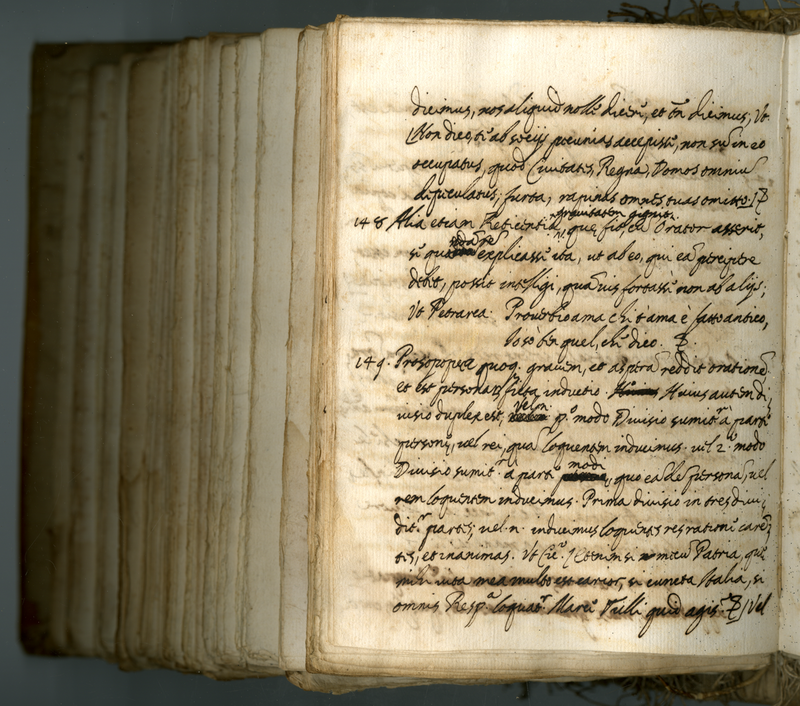 dicimus, nos aliquid nolle dicere, et tn̄ dicimus, Vt.
Non dico, te ab socijs pecunias accepisse, non sum in eo
occupatus, quod Civitates, Regna, Domos omniū
dipeculatus; furta, rapinas omnes tuas omitto.
gravitatem gignit.
148 Alia etiam Reticentia, que, fit cū Orator asserit,
se explicasse ita, ut ab eo, qui eā percipere
debet, possit intelligi, quāvis fortasse non ab alijs;
Vt Petrarca. Proverbio ama chi t'ama è fatto antico,
Io so ben quel, ch'i dico.
149. Prosopopeæ quoq. gravem, et asperā reddit orationē
et est personarū ficta inductio. Huius autem di,
visio duplex est, Vel n. p.º modo Divisio sumitr a parte
personę, vel rei, quā loquentem inducimus. vel 2.º modo
modi
Divisio sumitr a parte, quo ea de personā, vel
rem loquentem inducimus. Prima divisio in tres divi,
ditr partes, vel. n. inducimus loquentes res ratione carē,
tes, et inanimas. Vt Cic. Etenim si mecū Patria, quę
mihi vita mea multo est carior, si cuncta Italia, si
omnis Resp.ª loquatr Marce Tulli quid agis. Vel